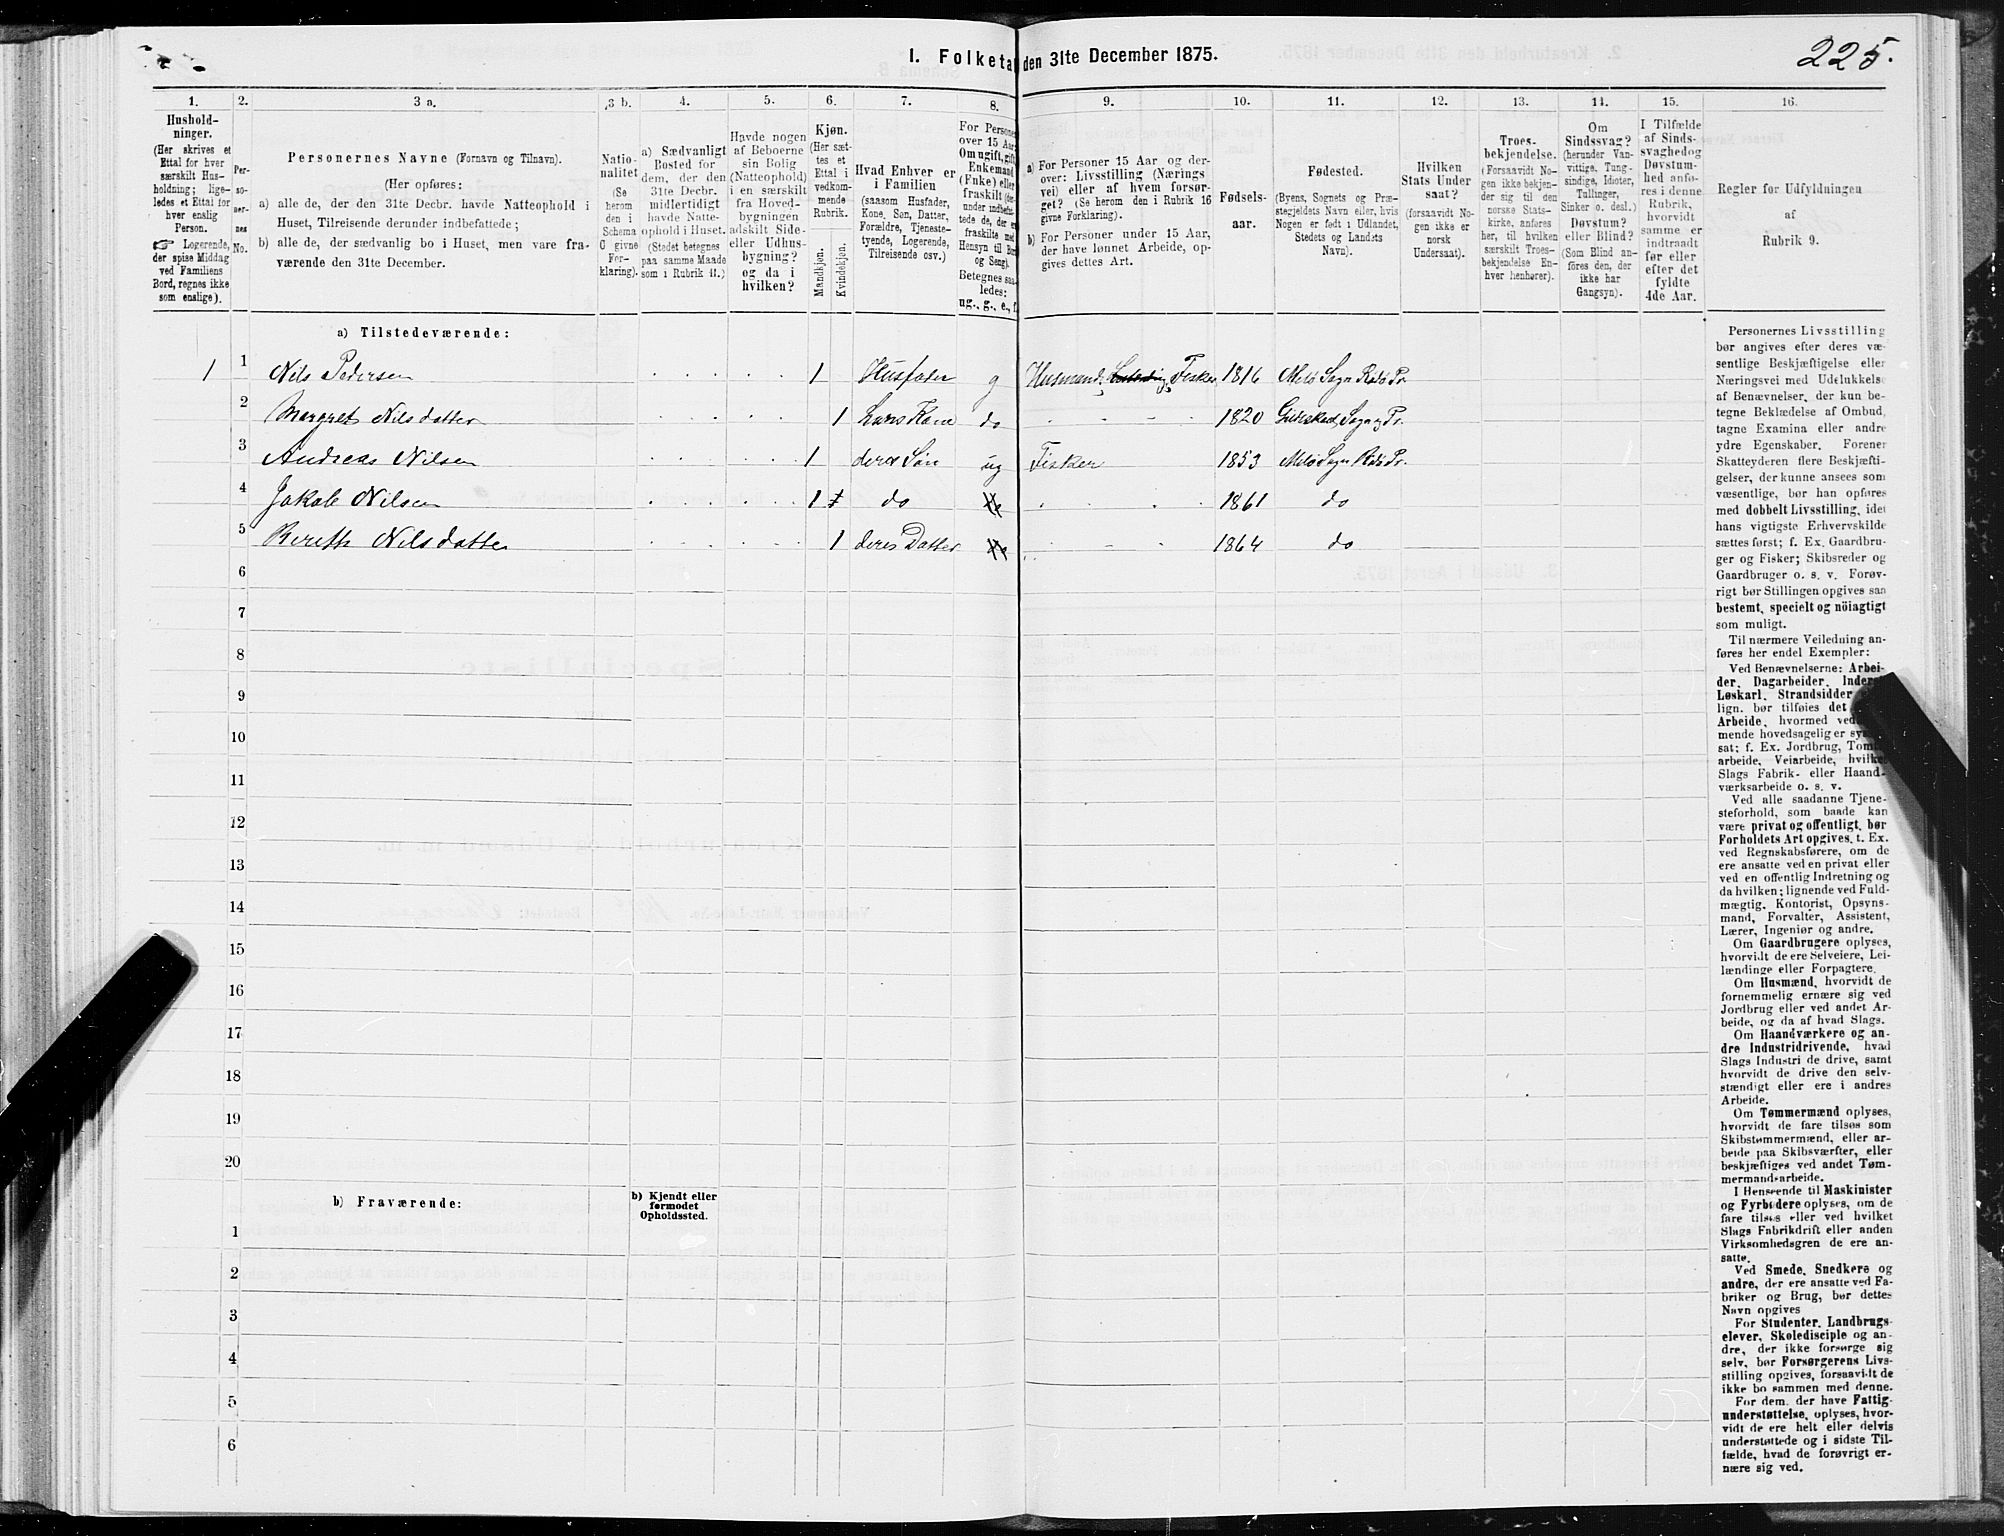 225.
I. Folketal den 31te December 1875.
1. 2. 3 a. 3 b. 4. 5. 6. 7. 8. 9. 10. 11. 12. 13. 14. 15. 16.
Hushold-
ninger.
(Her skrives et
Ettal for hver
særskilt Hus-
holdning; lige-
ledes et Ettal for
hver enslig
Person.
☞ Logerende,
der spise Middag
ved Familiens
Bord, regnes ikke
som enslige).
Per-
so-
ner-
nes
No.
Personernes Navne (Fornavn og Tilnavn).
(Her opføres:
a) alle de, der den 31te Decbr. havde Natteophold i
Huset, Tilreisende derunder indbefattede;
b) alle de, der sædvanlig bo i Huset, men vare fra-
værende den 31te December.
Natio-
nalitet
(Se
herom
den i
Schema
G givne
For-
klaring).
a) Sædvanligt
Bosted for
dem, der den
31te Decbr.
midlertidigt
havde Natte-
ophold i Huset.
(Stedet betegnes
paa samme Maade
som i Rubrik 11.)
Havde nogen
af Beboerne
sin Bolig
(Natteophold)
i en særskilt
fra Hoved-
bygningen
adskilt Side-
eller Udhus-
bygning?
og da i
hvilken?
Kjøn.
(Her sæt-
tes et
Ettal i
vedkom-
mende
Rubrik.
Mandkjøn.
Kvindekjøn.
Hvad Enhver er
i Familien
(saasom Husfader,
Kone, Søn, Datter,
Forældre, Tjeneste-
tyende, Logerende,
Tilreisende osv.)
For Personer
over 15 Aar:
Om ugift, gift,
Enkemand
(Enke) eller
fraskilt (der-
under indbefat-
tede de, der er
fraskilte med
Hensyn til Bord
og Seng).
Betegnes saa-
ledes:
ug., g., e., f.
a) For Personer 15 Aar og der-
over: Livsstilling (Nærings
vei) eller af hvem forsør-
get? (Se herom i Rubrik 16
givne Forklaring).
b) For Personer under 15 Aar,
der have lønnet Arbeide, op-
gives dettes Art.
Fødsels-
aar.
Fødested.
(Byens, Sognets og Præ-
stegjeldets Navn eller, hvis
Nogen er født i Udlandet,
Stedets og Landets
Navn).
Hvilken
Stats Under
saat?
(forsaavidt No-
gen ikke er
norsk
Undersaat).
Troes-
bekjendelse.
(Forsaavidt No
gen ikke bekjen-
der sig til den
norske Stats-
kirke, anføres
her, til hvilken
særskilt Troes-
bekjendelse En-
hver henhører).
Om
Sindssvag?
(herunder Van-
vittige, Tung-
sindige, Idioter,
Tullinger,
Sinker o. desl.)
Døvstum?
eller Blind?
(Som Blind an-
føres den, der
ikke har
Gangsyn).
I Tilfælde
af Sinds-
svaghed og
Døvstum-
hed anfø-
res i denne
Rubrik,
hvorvidt
samme er
indtraadt
før eller
efter det
fyldte
4de Aar.
Regler for Udfyldningen
af
Rubrik 9.
a) Tilstedeværende:
1 1 Nils Pedersen 1 Husfader g Husmand, Fisker, 1816 Melö Sogn Rödö Pr.
2 Margret Nilsdatter 1 hans Kone do 1820 Gildeskaal Sogn og Pr.
3 Andreas Nilsen 1 deres Søn ug Fisker 1853 Melö Sogn Rödö Pr.
4 Jakob Nilsen 1 do 1861 do
5 Bereth Nilsdatter 1 deres Datter 1864 do
6
7
8
9
10
11
12
13
14
15
16
17
18
19
20
b) Fraværende:
b) Kjendt eller
formodet
Opholdssted.
1
2
3
4
5
6
Personernes Livsstilling
bør angives efter deres væ-
sentlige Beskjæftigelse eller
Næringsvei med Udelukkelse
af Benævnelser, der kun be-
tegne Beklædelse af Ombud,
tagne Examina eller andre
ydre Egenskaber. Forener
Skatteyderen flere Beskjæfti-
gelser, der kunne ansees som
væsentlige, bør han opføres
med dobbelt Livsstilling, idet
hans vigtigste Erhvervskilde
sættes først; f. Ex. Gaardbru-
ger og Fisker; Skibsreder og
Gaardbruger o. s. v. Forøv-
rigt bør Stillingen opgives saa
bestemt, specielt og nöiagtigt
som muligt.
Til nærmere Veiledning an-
føres her endel Exempler:
Ved Benævnelserne: Arbei-
der, Dagarbeider, Inderst,
Løskarl, Strandsidder
lign. bør tilføies det
Arbeide, hvormed ved-
mende hovedsagelig er sys-
sat; f. Ex. Jordbrug, Tomt-
arbeide, Veiarbeide, hvilket
Slags Fabrik- eller Haand-
værksarbeide o. s. v.
Ved alle saadanne Tjene-
steforhold, som baade kan
være privat og offentligt, bør
Forholdets Art opgives, t. Ex.
ved Regnskabsførere, om de
ere ansatte ved en privat eller
ved en offentlig Indretning og
da hvilken; lignende ved Fuld-
mægtig, Kontorist, Opsyns-
mand, Forvalter, Assistent,
Lærer, Ingeniør og andre.
Om Gaardbrugere oplyses,
hvorvidt de ere Selveiere, Lei-
lændinge eller Forpagtere.
Om Husmænd, hvorvidt de
fornemmelig ernære sig ved
Jordbrug eller ved andet Ar-
beide, og da af hvad Slags.
Om Haandværkere og an-
dre Industridrivende, hvad
Slags Industri de drive, samt
hvorvidt de drive den selv-
stændigt eller ere i andres
Arbeide.
Om Tømmermænd oplyses,
hvorvidt de fare tilsøs som
Skibstømmermænd, eller ar-
beide paa Skibsværfter, eller
beskjæftiges ved andet Tøm-
mermandsarbeide.
I Henseende til Maskinister
og Fyrbødere oplyses, om de
fare tilsøs eller ved hvilket
Slags Fabrikdrift eller anden
Virksomhedsgren de ere an-
satte.
Ved Smede, Snedkere og
andre, der ere ansatte ved Fa-
briker og Brug, bør dettes
Navn opgives
For Studenter, Landbrugs-
elever, Skoledisciple og an-
dre, der ikke forsørge sig
selv, bør Forsørgerens Livs-
stilling opgives, forsaavidt de
ikke bo sammen med denne.
For dem, der have Fattig-
understøttelse, oplyses, hvor-
vidt de ere helt eller delvis
understøttede og i sidste Til-
fælde, hvad de forøvrigt er-
nære sig ved.